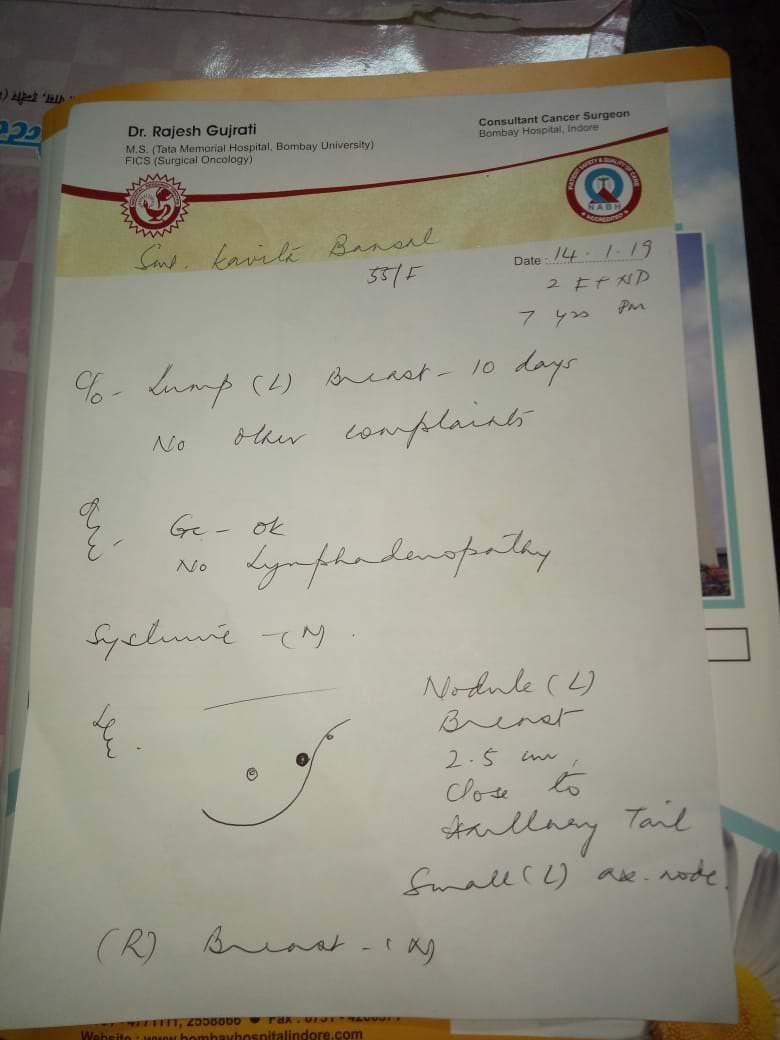 Dr. Rajesh Gujrati
M.S. (Tata Memorial Hospital, Bombay University)
FICS (Surgical Oncology)
Consultant Cancer Surgeon
Bombay Hospital, Indore
PATIENT SAFETY & QUALITY OF CARE
NABH
ACCREDITED
Smt. Kavita Bansal
55/F
Date : 14.1.19
2 FTND
7 yrs PM
C/o - Lump (L) Breast - 10 days
No other complaints
O/E - GC - OK
No Lymphadenopathy
Systemic - (N).
L/E.
Nodule (L)
Breast
2.5 cm,
Close to
Axillary Tail
Small (L) ax. node.
(R) Breast - (N)
4771111, 2558866 ● Fax : 0731 -
Website : www.bombayhospitalindore.com